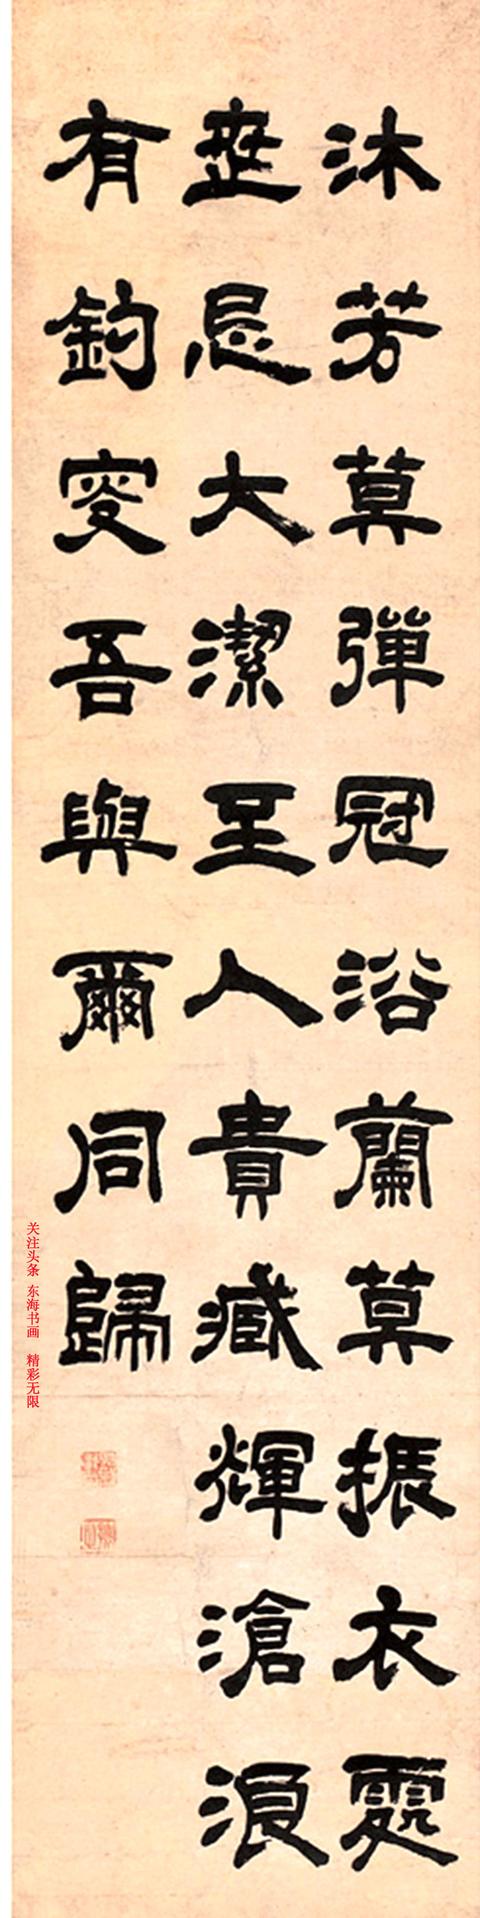 沐芳莫彈冠浴蘭莫振衣處
世忌大潔至人貴臧輝滄浪
有釣叟吾與爾同歸
关注头条 东海书画 精彩无限